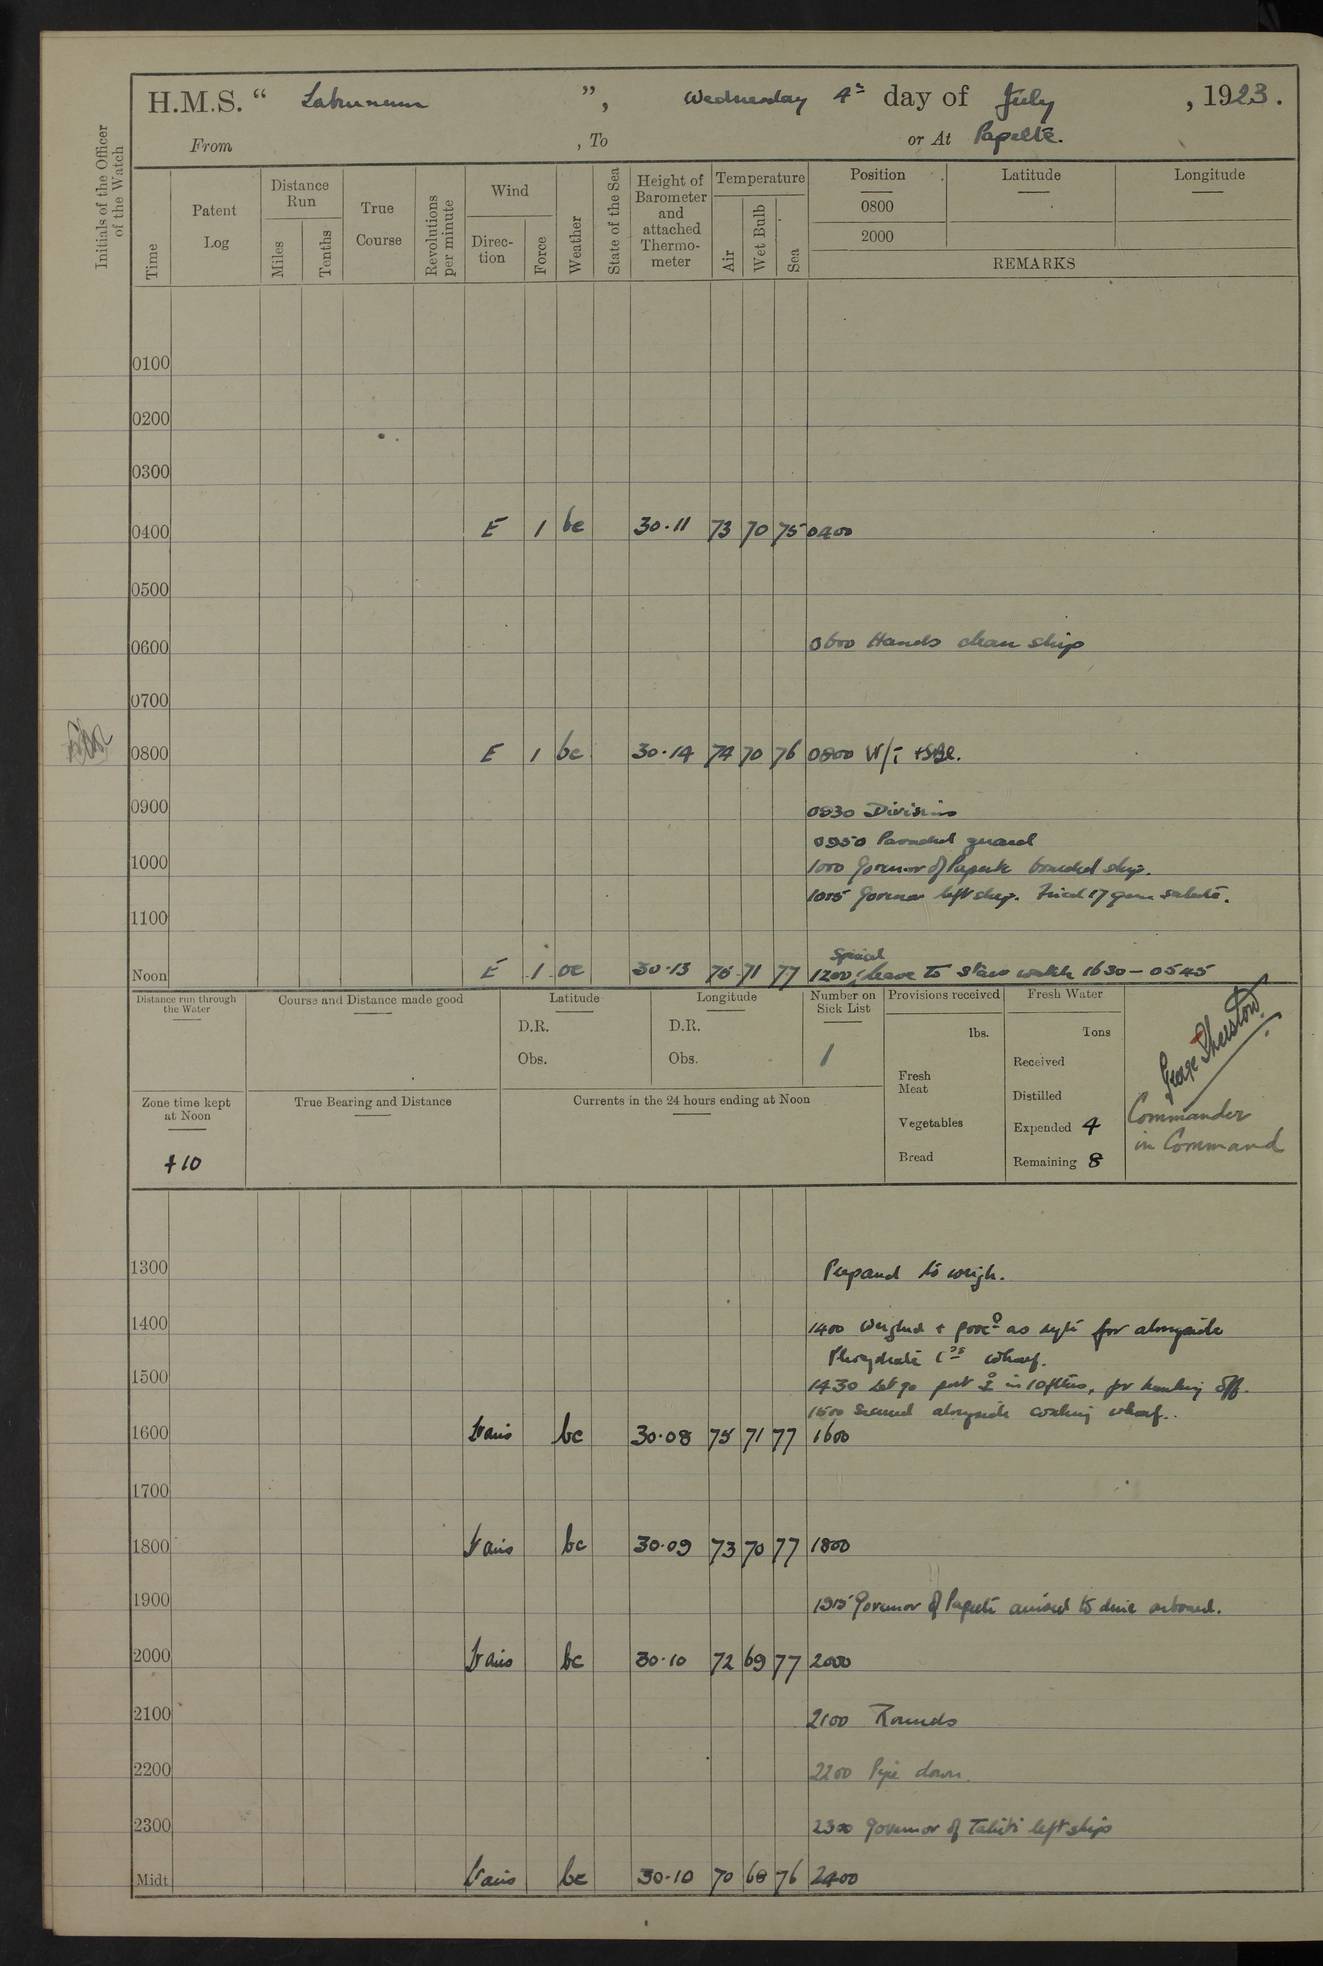 H.M.S. “ Laburnum ”, Wednesday 4th day of July, 1923.
From , To or At Papeete.
Initials of the Officer of the Watch
Time
Patent Log
Distance Run
Miles
Tenths
True Course
Revolutions per minute
Wind
Direc-tion
Force
Weather
State of the Sea
Height of Barometer and attached Thermo-meter
Temperature
Air
Wet Bulb
Sea
Position Latitude Longitude
0800
2000
REMARKS
0100
0200
0300
0400 E 1 bc 30.11 73 70 75 0400
0500
0600 0600 Hands clean ship
0700
0800 E 1 bc 30.14 74 70 76 0800 W/T
0900 0830 Divisions
0950 Paraded guard
1000 1000 Governor of Papeete boarded ship.
1015 Governor left ship. Fired 17 gun salute.
1100
Special
Noon E 1 bc 30.13 75 71 77 1200 leave to starb watch 1630 - 0545
Distance run through the Water
Course and Distance made good
Latitude
D.R.
Obs.
Longitude
D.R.
Obs.
Number on Sick List
1
Provisions received
lbs.
Fresh Meat
Vegetables
Bread
Fresh Water
Tons
Received
Distilled
Expended 4
Remaining 8
George
Commander
in Command
Zone time kept at Noon
+10
True Bearing and Distance
Currents in the 24 hours ending at Noon
1300 Prepared to weigh.
1400 1400 Weighed + procd as reqte for alongside
Phosphate Cos wharf.
1500 1430 Let go port ⚓ in 10 fthms, for hauling off.
1500 Secured alongside coaling wharf.
1600 Vairs bc 30.08 75 71 77 1600
1700
1800 Vairs bc 30.09 73 70 77 1800
1900 1915 Governor of Papeete arrived to dine onboard.
2000 Vairs bc 30.10 72 69 77 2000
2100 2100 Rounds
2200 2200 Pipe down.
2300 2300 Governor of Tahiti left ship
Midt. Vairs bc 30.10 70 68 76 2400